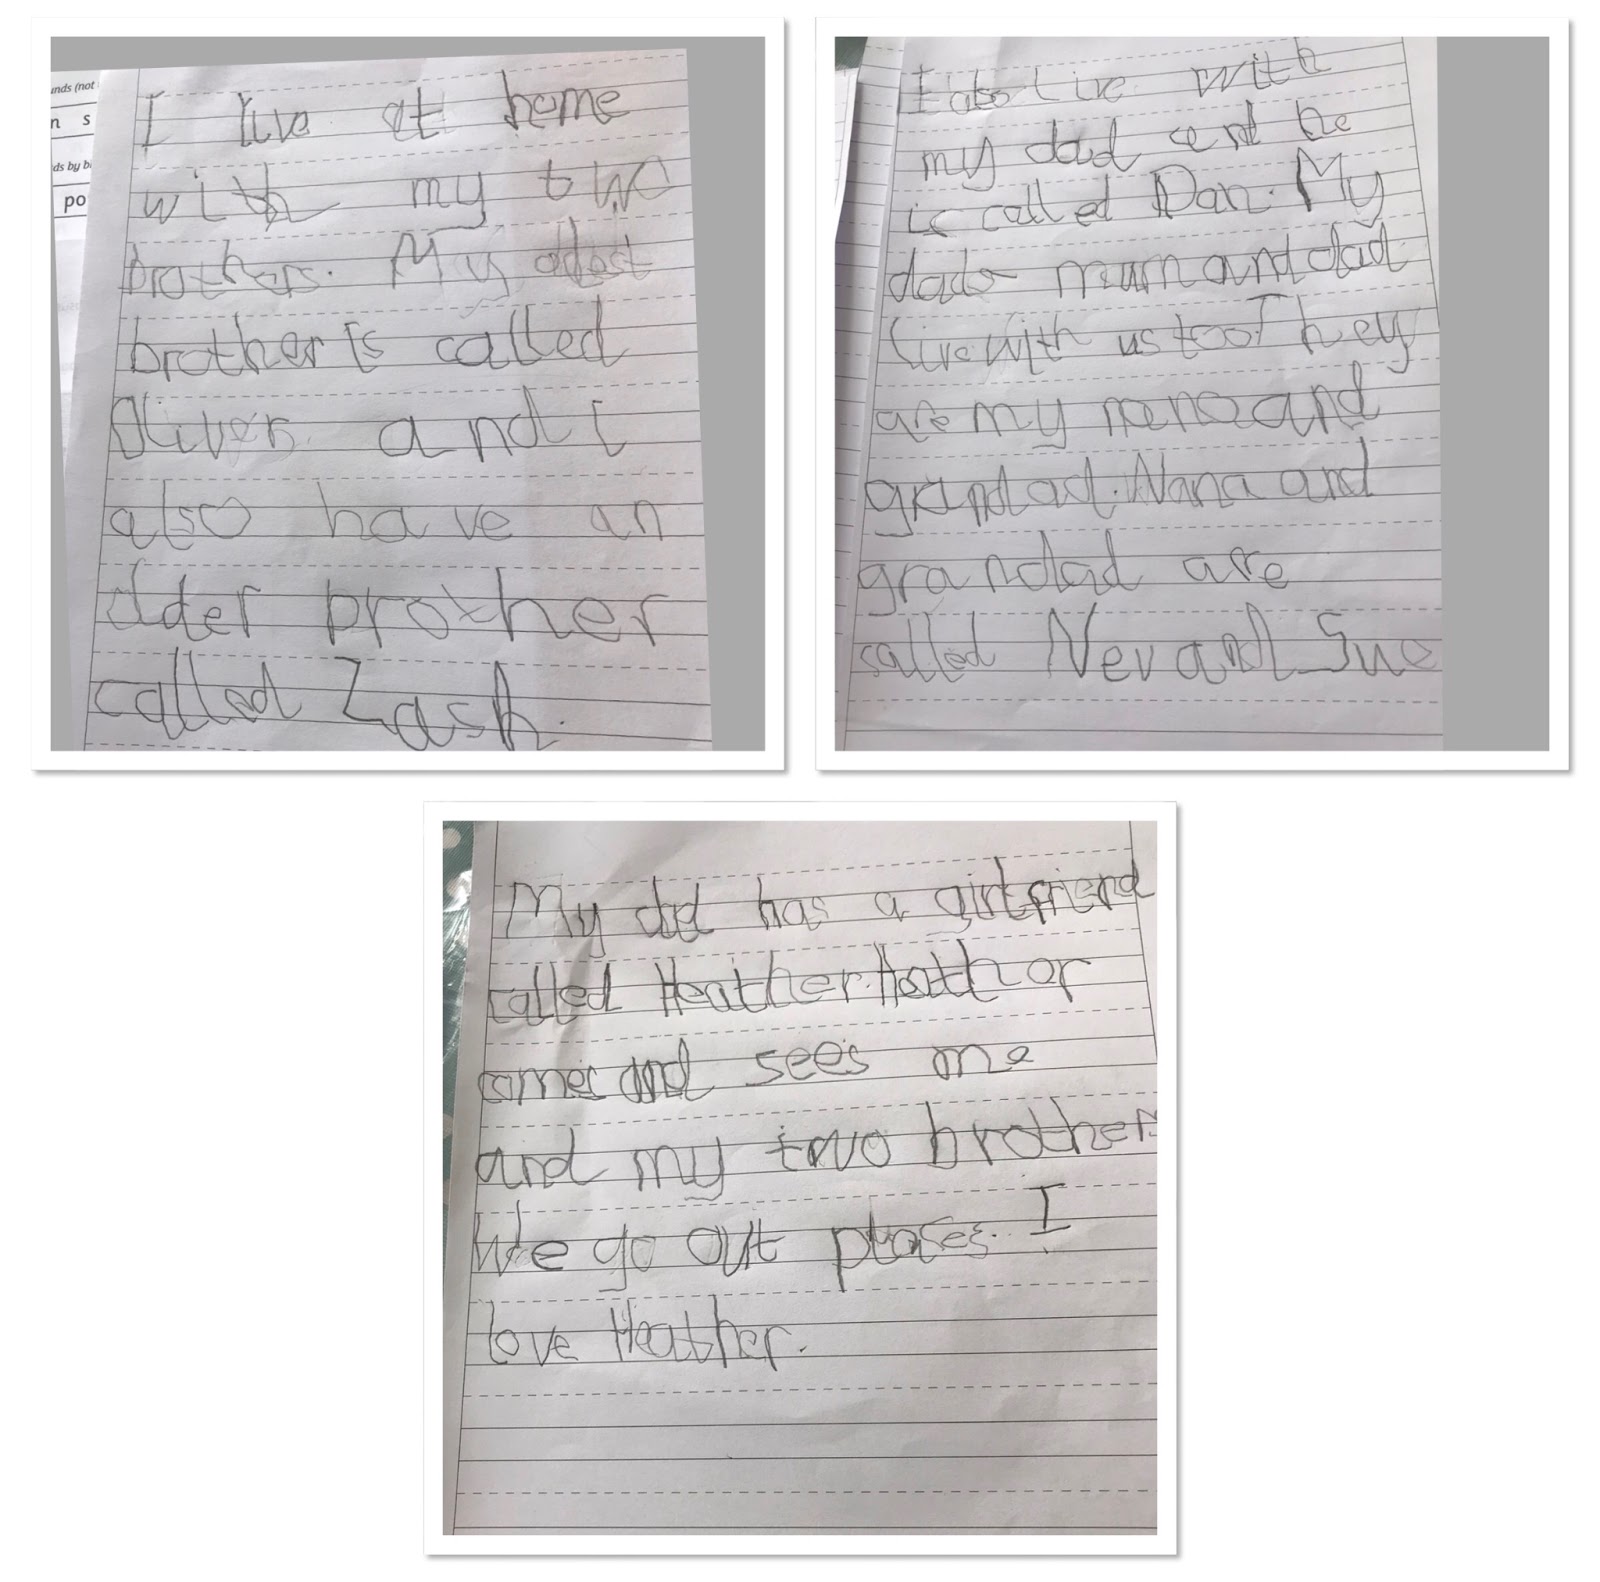 unds (not
n s
ds by bl
po
I live at home
with my two
brothers. My oldest
brother is called
Oliver and I
also have an
older brother
called Zash.
I also live with
my dad and he
is called Dan. My
dads mum and dad
live with us too. They
are my nana and
grandad. Nana and
grandad are
called Nev and Sue
My dad has a girlfriend
called Heather. Heather
comes and sees me
and my two brothers
We go out places. I
love Heather.